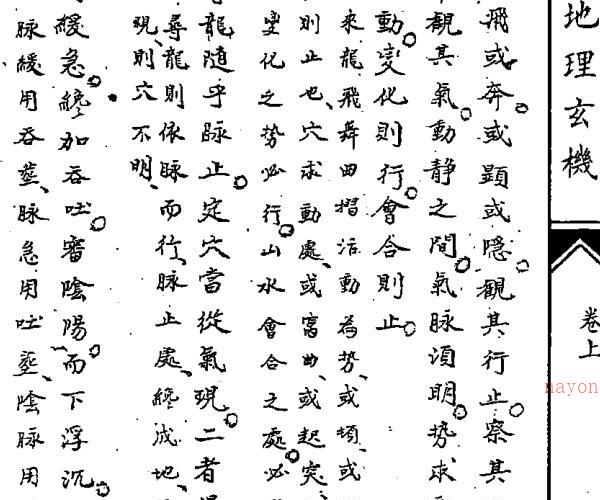 地理玄機
卷上
nayon
飛或奔。或顯或隱。觀其行止。察其
觀其氣。動靜之間。氣脉須明。勢求
動。變化則行。會合則止。
來龍飛舞曲摺活動為勢、或頓、或
則止也、穴求動處、或窩曲、或起突、
變化之势必行。山水會合之處。必
龍隨乎脉止。定穴當從氣現。二者
尋龍則依脉而行、脉止處、纔成地、
現、則穴不明、
緩急。纔加吞吐。審陰陽。而下浮沉。
脉緩用吞塟、脉急用吐塟、陰脉用